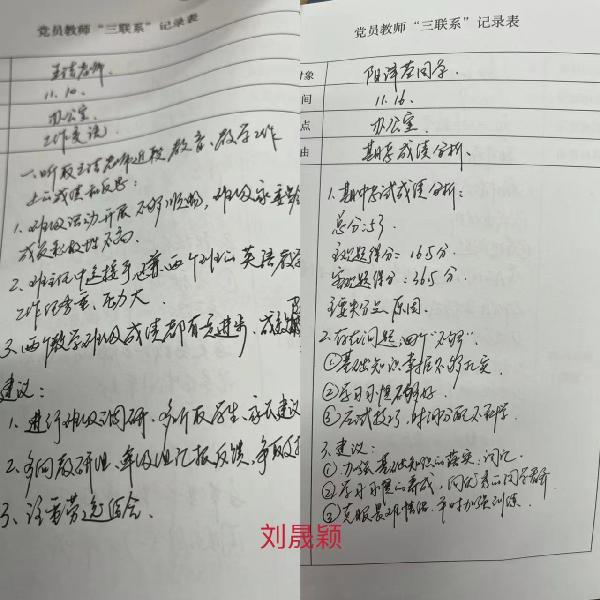 党员教师“三联系”记录表
11.10.
办公室.
工作交谈
上的成绩和反思:
1. 班级活动开展不够顺畅, 班级家委会
成员积极性不高.
2. 班主任中途接手, 两个班的英语教学
工作任务重、压力大.
3. 两个教学班级成绩都有进步,
建议:
1. 进行班级调研、多听取学生、家长建议
2. 多向教研组、年级组汇报反馈, 争取支持
3. 注意劳逸结合.
党员教师“三联系”记录表
对象
阳泽萱同学.
间
11.16.
点
办公室.
由
期中成绩分析.
1. 期中考试成绩分析:
总分:53
主观题得分: 16.5分
客观题得分: 36.5分
主要失分点原因.
2. 存在问题: 四个“不够”.
①基础知识掌握不够扎实
②学习习惯不够好
③应试技巧、时间分配不科学
3. 建议:
①加强基础知识的落实: 词汇
②学习习惯的养成, 向优秀的同学看齐
③克服畏难情绪、平时加强训练.
刘晟颖